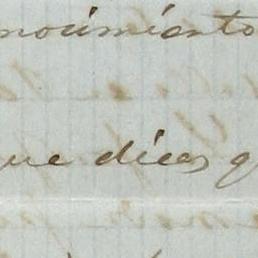 nocimiento
que dices q